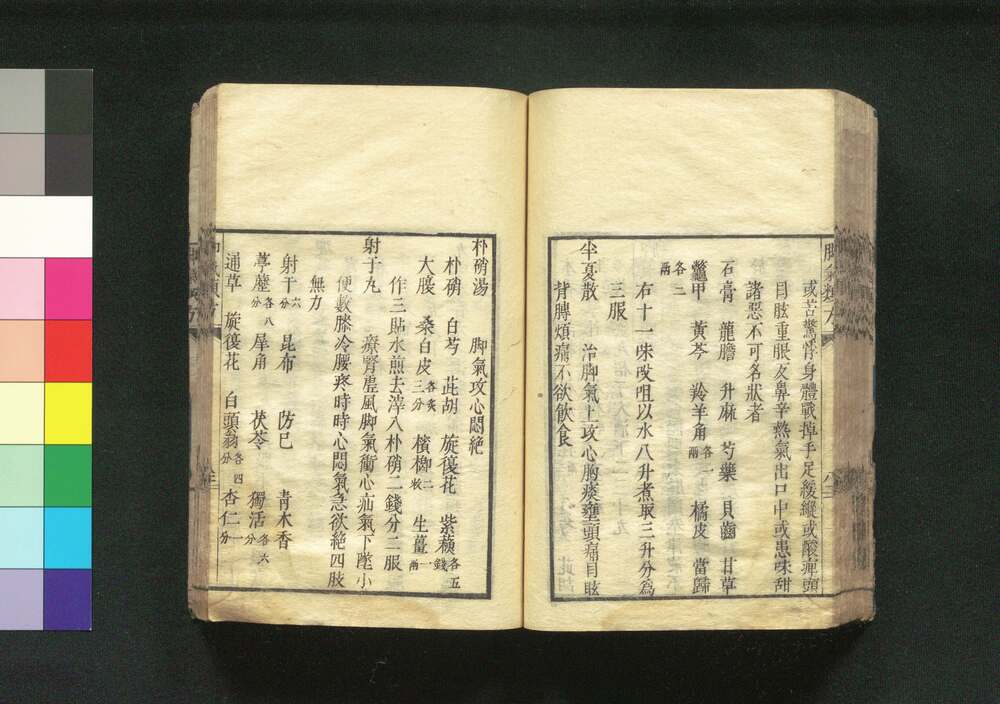 脚氣類方
或苦驚悸身體戰掉手足緩縱或酸痺頭
目眩重眼反鼻辛熱氣出口中或患味甜
諸惡不可名狀者
石膏 龍膽 升麻 芍藥 貝齒 甘草
鼈甲 黃芩 羚羊角各一兩 橘皮 當歸
各二兩
右十一味㕮咀以水八升煮取三升分為
三服
半夏散 治脚氣上攻心胸痰壅頭痛目眩
背膊煩痛不欲飲食
朴硝湯 脚氣攻心悶絶
朴硝 白芍 茈胡 旋復花 紫蘇各五錢
大腹 桑白皮各炙三分 檳榔二枚 生薑一兩
作三貼水煎去滓入朴硝二錢分二服
射干丸 療腎虛風脚氣衝心疝氣下墜小
便數膝冷腰疼時時心悶氣急欲絶四肢
無力
射干六分 昆布 防巳 青木香
葶藶各八分 犀角 茯苓 獨活各六分
通草 旋復花 白頭翁各四分 杏仁一分